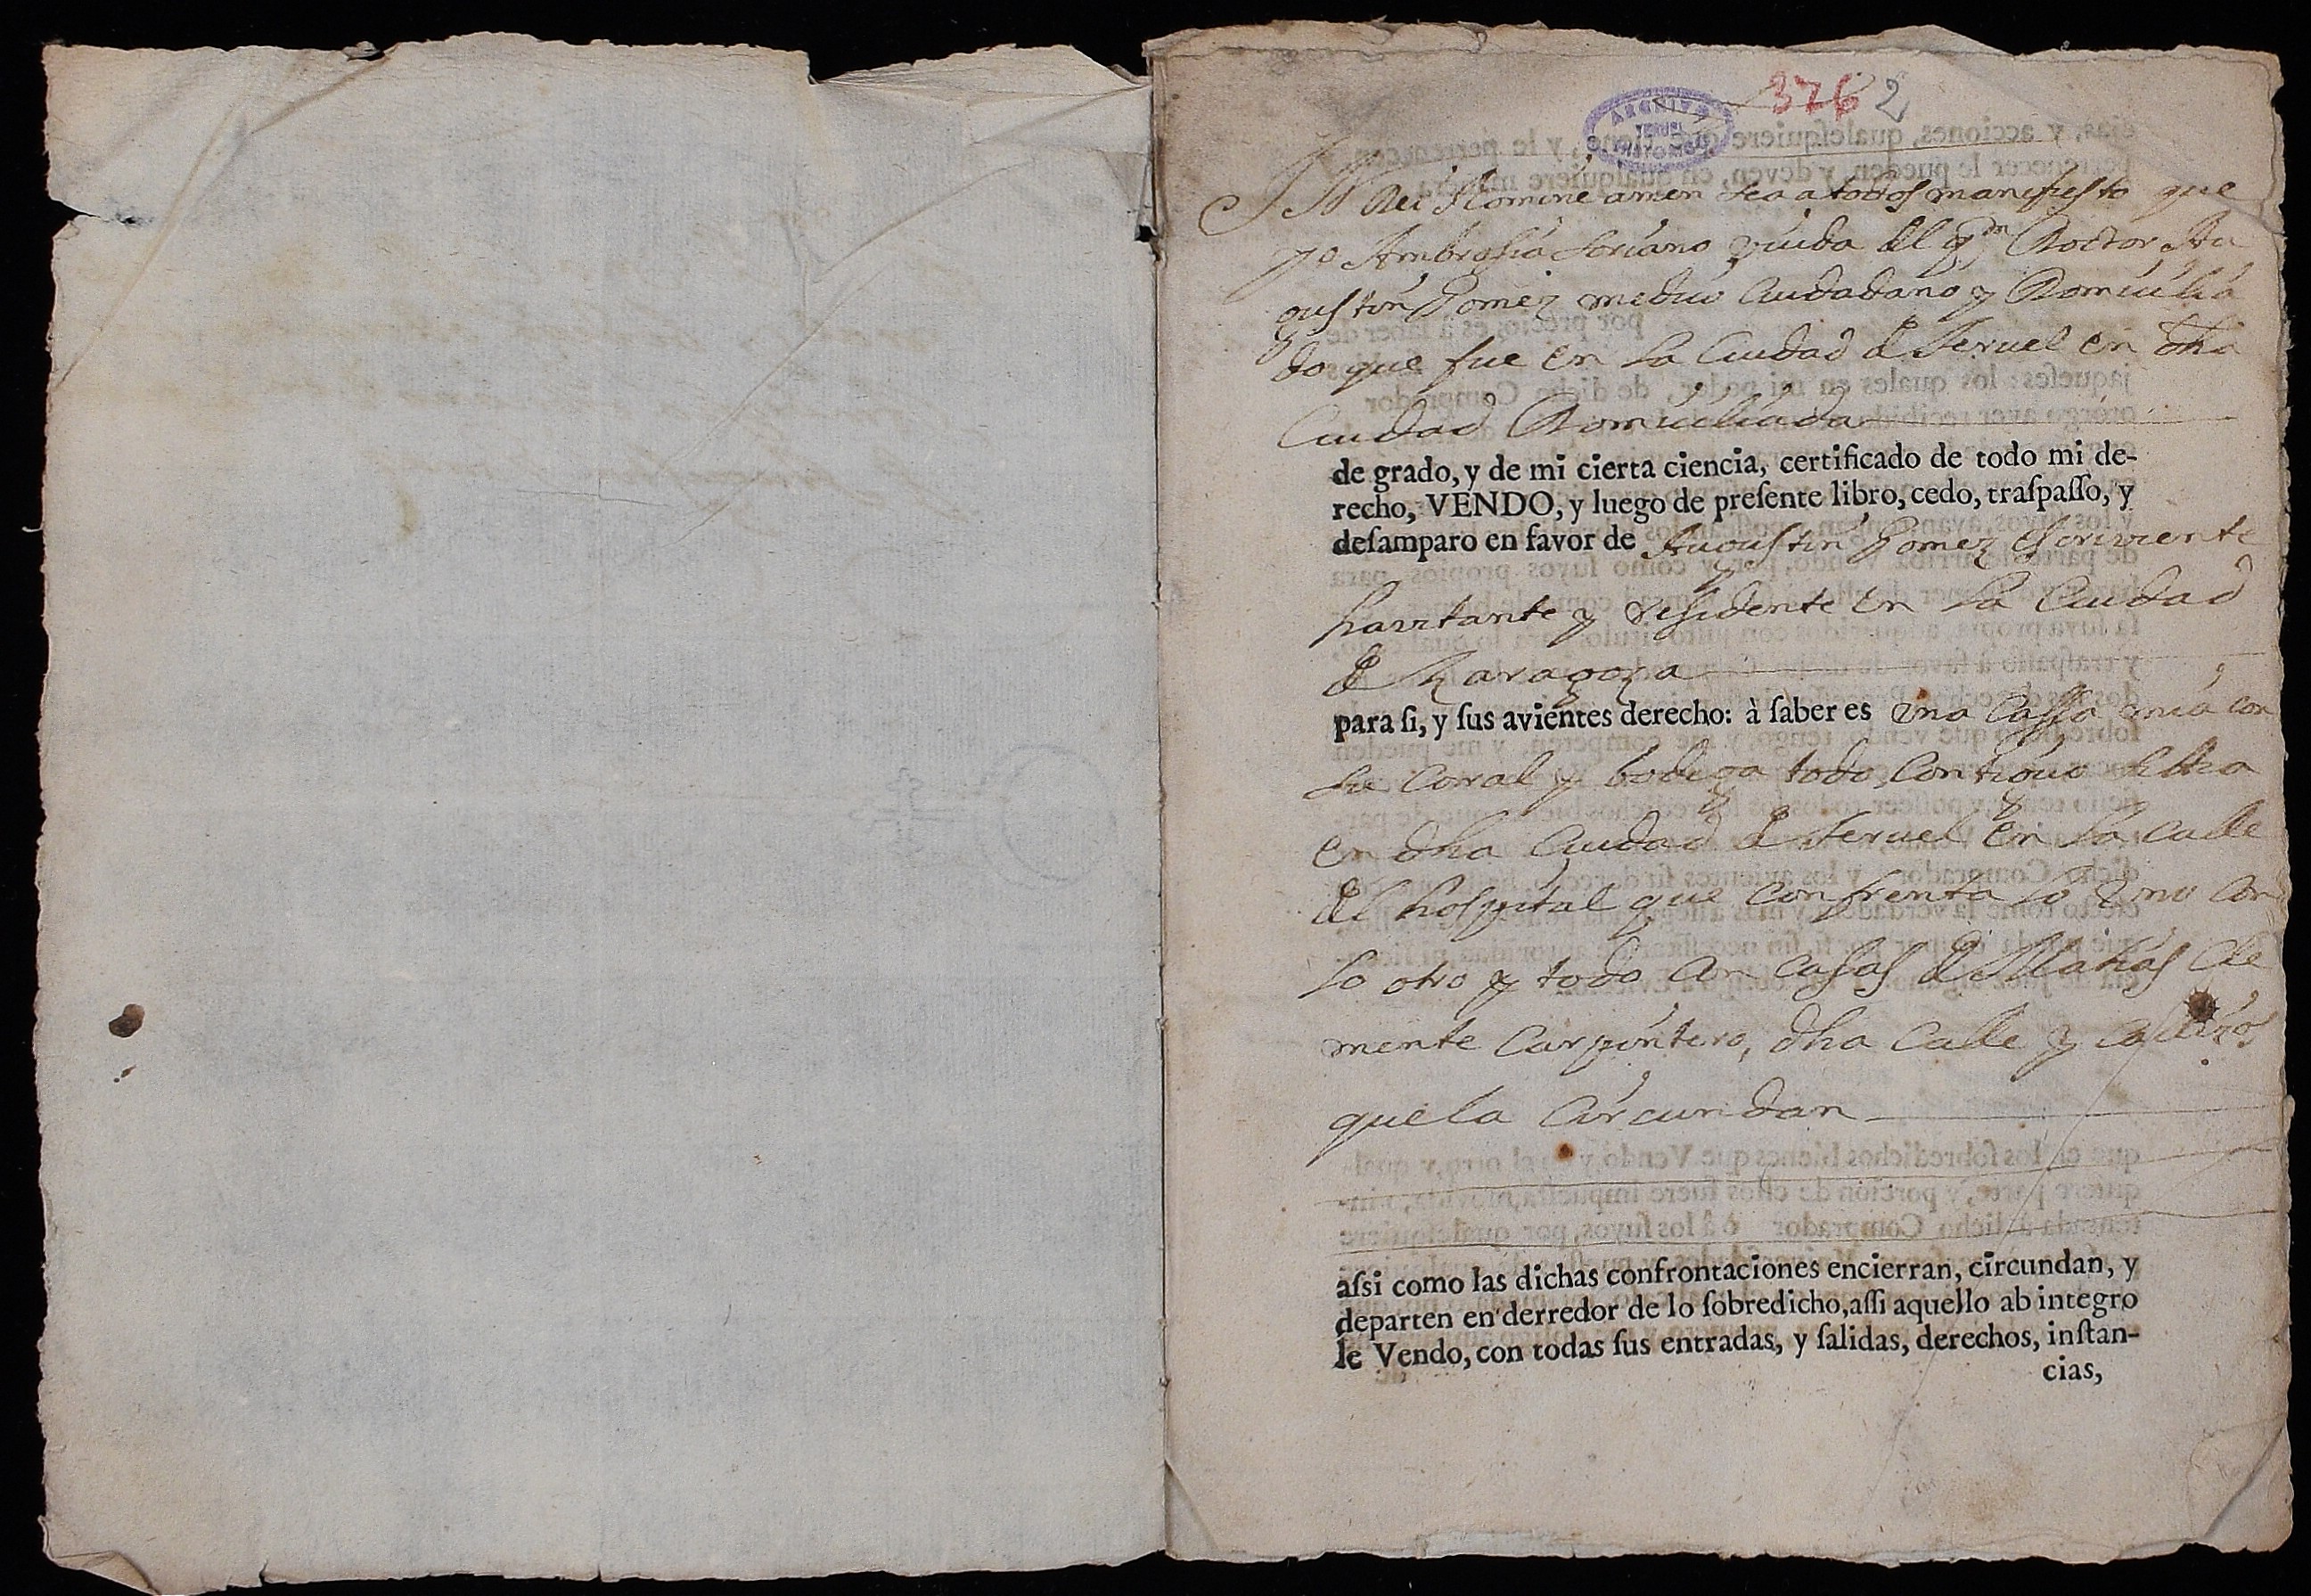 3762
ARCHIVO
TERUEL
HISTORICO
IN Dei Nomine amen sea a todos manifiesto que
yo Ambrosia Soriano viuda del qdn Doctor Au
gustin Gomez medico Ciudadano y Domicilia
do que fue en la Ciudad de Teruel en dha
Ciudad Domiciliada
de grado, y de mi cierta ciencia, certificado de todo mi de-
recho, VENDO, y luego de preſente libro, cedo, traſpaſſo, y
deſamparo en favor de Augustin Gomez escriviente
havitante y residente en la Ciudad
de Zaragoza
para ſi, y ſus avientes derecho: à ſaber es una Cassa mia con
su corral y bodega todo contiguo sitia
en dha Ciudad de Teruel en la calle
del hospital que confrenta lo uno con
lo otro y todo con casas de Matias Cle
mente Carpintero, dha Calle y
que la circundan
aſsi como las dichas confrontaciones encierran, circundan, y
departen en derredor de lo ſobredicho, aſſi aquello ab integro
le Vendo, con todas ſus entradas, y ſalidas, derechos, inſtan-
cias,